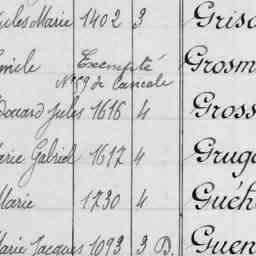 Jules Marie 1402 3 Griso
Émile Exempté Grosm
N° 59 de Cancale
Édouard Jules 1616 4 Gross
Marie Gabriel 1617 4 Gruga
Marie 1730 4 Guéh
Marie Jacques 1093 3 D. Guen